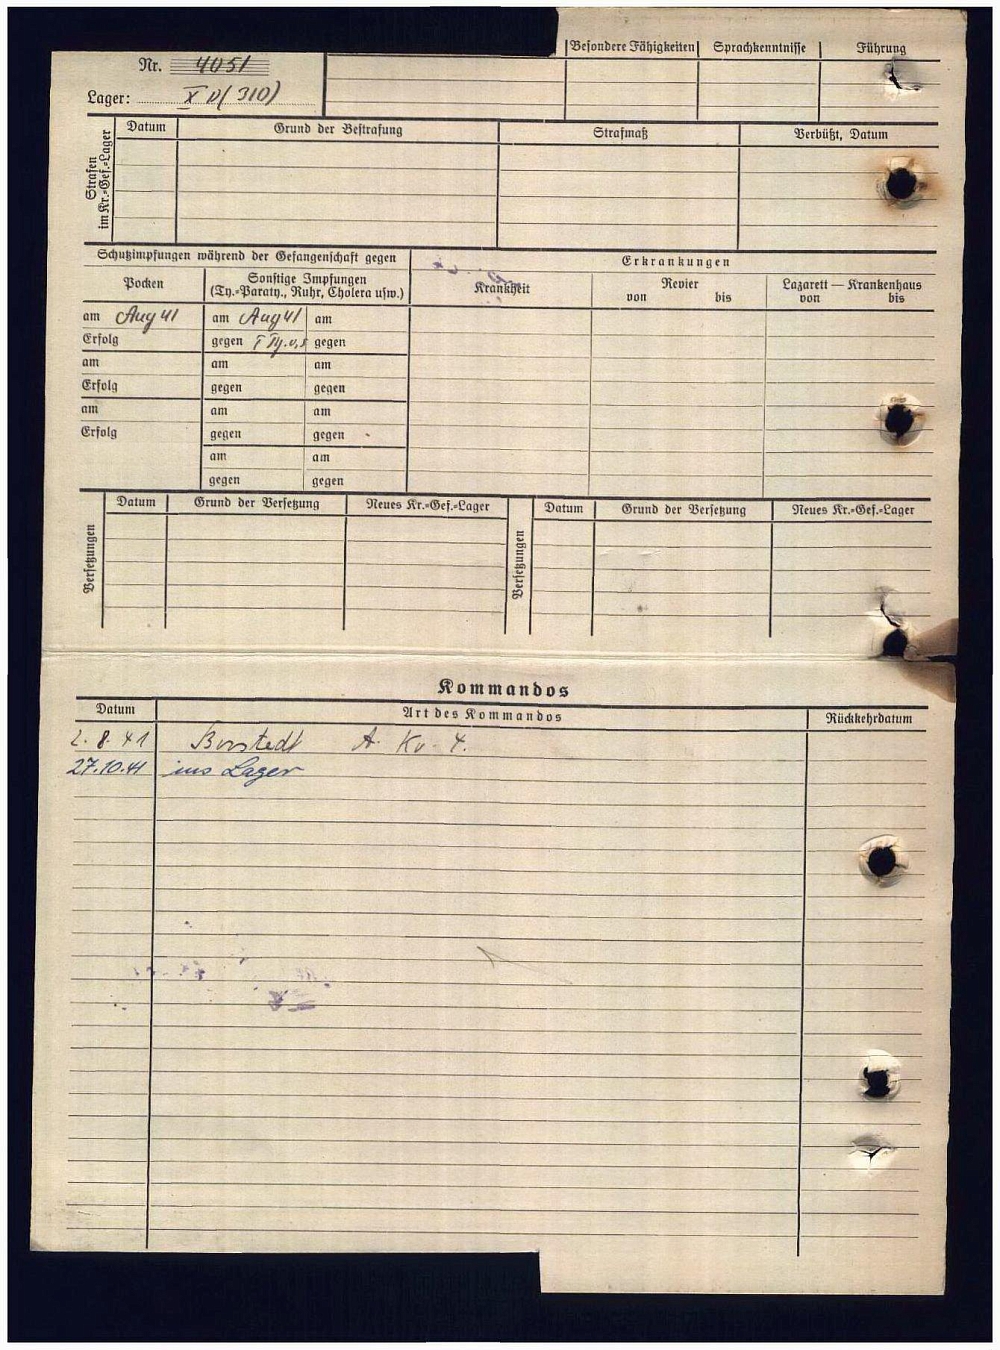 Nr. 4051
Lager: X D (310)
Besondere Fähigkeiten Sprachkenntnisse Führung
Strafen im Kr.-Gef.-Lager
Datum Grund der Bestrafung Strafmaß Verbüßt, Datum
Schutzimpfungen während der Gefangenschaft gegen Erkrankungen
Pocken Sonstige Impfungen Krankheit Revier Lazarett — Krankenhaus
(Ty.-Paraty., Ruhr, Cholera usw.) von bis von bis
am Aug 41 am Aug 41 am
Erfolg gegen gegen
am am am
Erfolg gegen gegen
am am am
Erfolg gegen gegen
am am
gegen gegen
Versetzungen Datum Grund der Versetzung Neues Kr.-Gef.-Lager Versetzungen Datum Grund der Versetzung Neues Kr.-Gef.-Lager
Kommandos
Datum Art des Kommandos Rückkehrdatum
2. 8. 41 Borstedt A. Ko. 4.
27.10.41 ins Lager